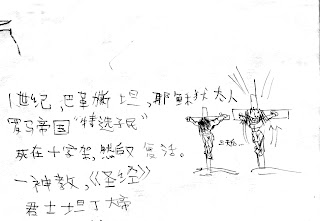 1世纪,巴革撕坦,耶稣犹太人
罗马帝国“特选子民”
死在十字架,然后又复活。
一神教,《圣经》
君士坦丁大帝
三天后…